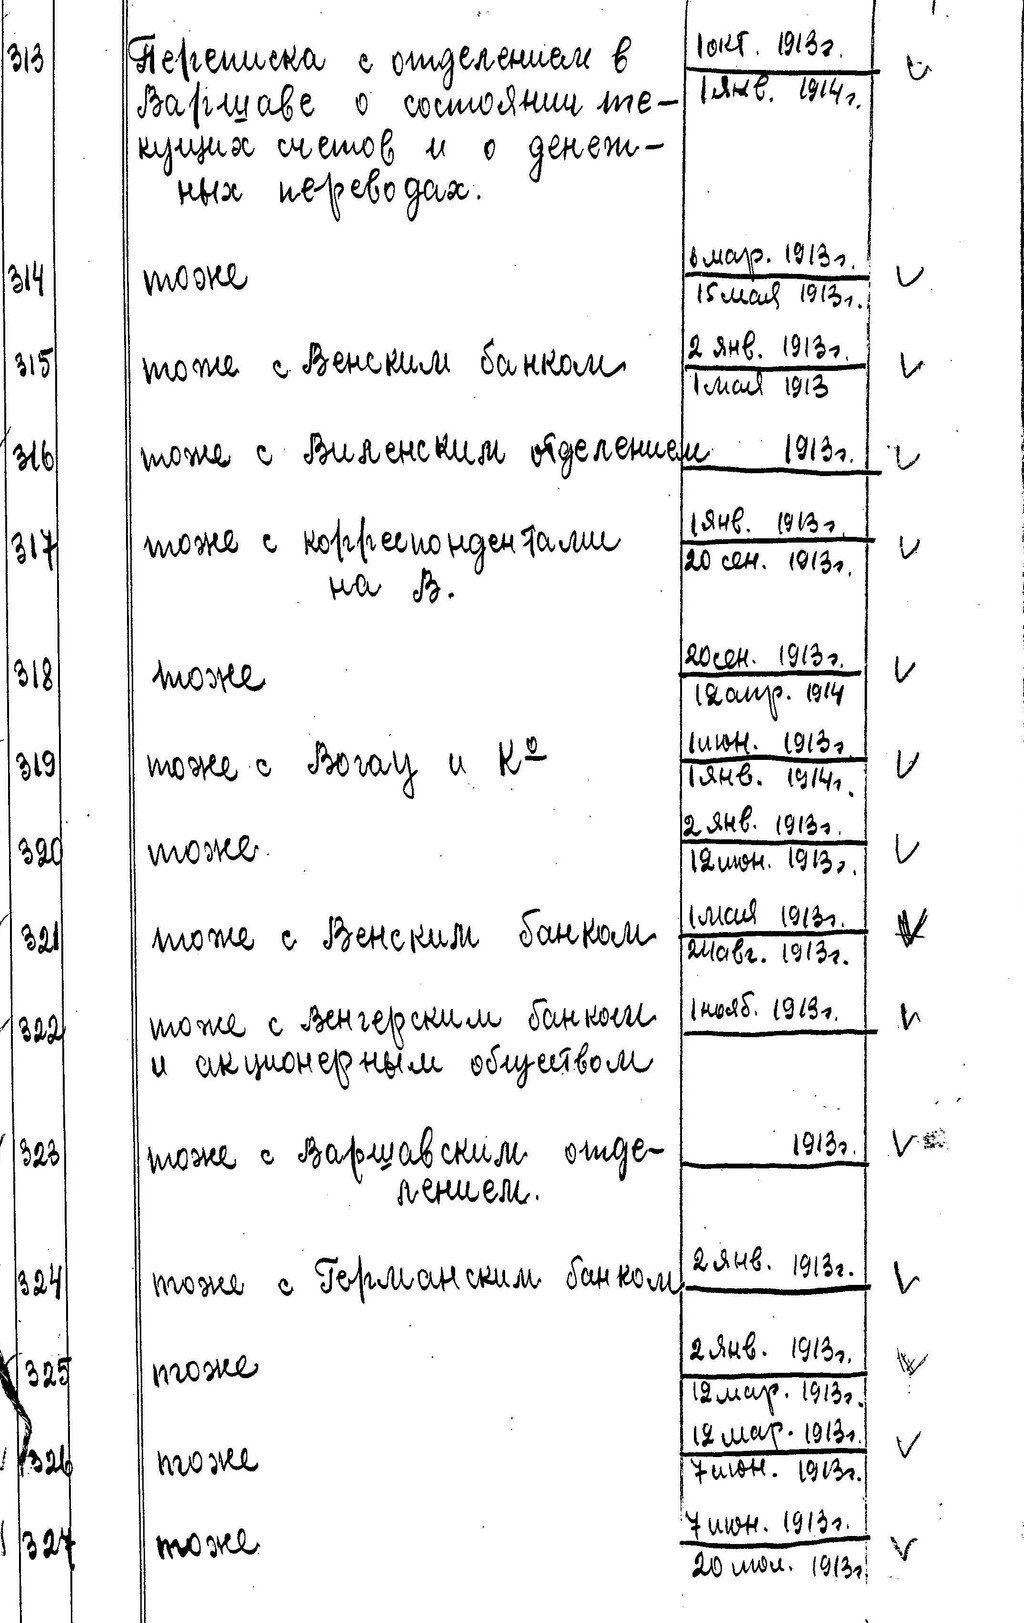 313 Переписка с отделением в 1 окт. 1913г.
Варшаве о состоянии те- 1 янв. 1914г.
кущих счетов и о денеж-
ных переводах.
314 тоже мар. 1913г.
15 мая 1913г.
315 тоже с Венским банком 2 янв. 1913г.
1 мая 1913
316 тоже с Виленским отделением 1913г.
317 тоже с корреспондентами 1 янв. 1913г.
на В. 20 сен. 1913г.
318 тоже 20 сен. 1913г.
12 апр. 1914
319 тоже с Вогау и Кº 1 июн. 1913г.
1 янв. 1914г.
320 тоже 2 янв. 1913г.
12 июн. 1913г.
321 тоже с Венским банком 1 мая 1913г.
24 авг. 1913г.
322 тоже с Венгерским банком 1 нояб. 1913г.
и акционерным обществом
323 тоже с Варшавским отде- 1913г.
лением.
324 тоже с Германским банком 2 янв. 1913г.
325 тоже 2 янв. 1913г.
12 мар. 1913г.
326 тоже 12 мар. 1913г.
7 июн. 1913г.
327 тоже 7 июн. 1913г.
20 июл. 1913г